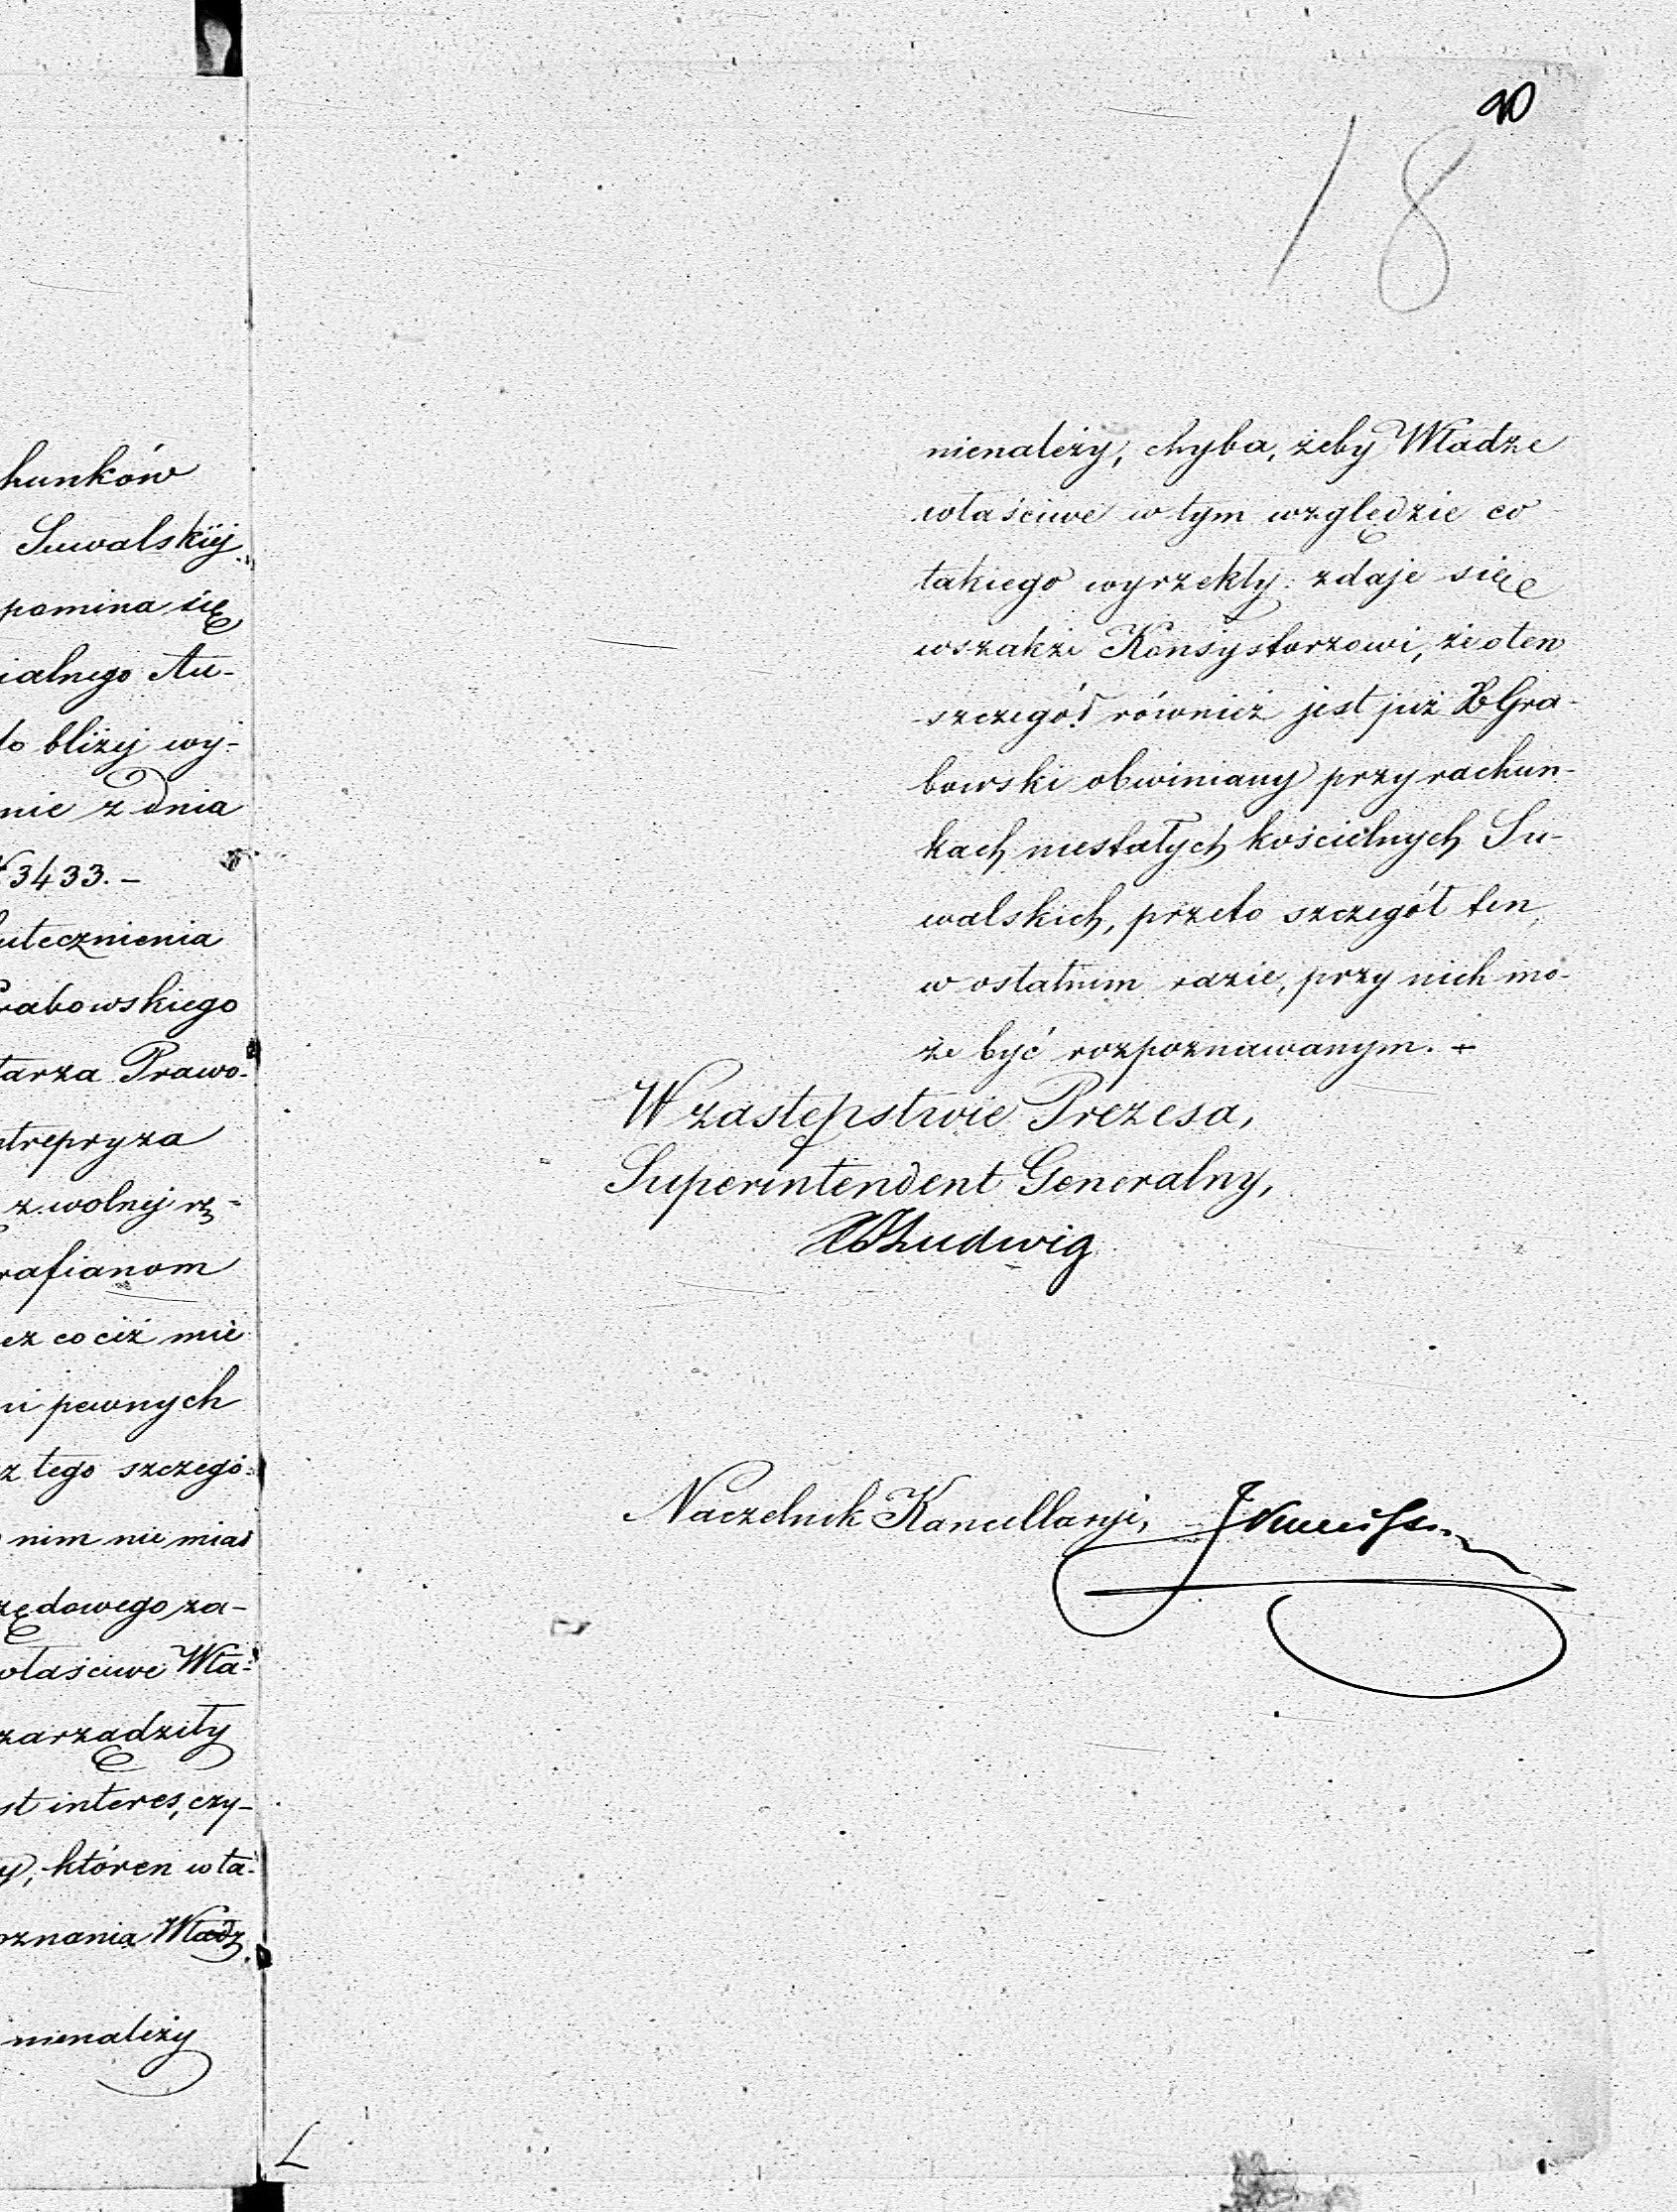 hunków
Suwalskiij
pomina się
ialnego Au-
to bliżej wy-
nie z dnia
N 3433. —
utecznienia
rabowskiego
tarza Prawo-
ntrepryza
z wolnej rę-
rafianom
ez co ciż mie
ni pewnych
z tego szczegó-
nim nie miał
zędowego za-
właściwe Wła-
zarządziły
st interes, czy-
y, któren wła-
oznania Władz
nienależy
18
nienależy, chyba, żeby Władze
właściwe w tym względzie co
takiego wyrzekły: zdaje się
wszakże Konsystorzowi, że o ten
szczegół również jest już X Gra-
bowski obwiniany przy rachun-
kach niestałych kościelnych Su-
walskich, przeto szczegół ten,
w ostatnim razie, przy nich mo-
że być rozpoznawanym. —
W zastępstwie Prezesa,
Superintendent Generalny,
Ludwig
Naczelnik Kancellaryi,
L